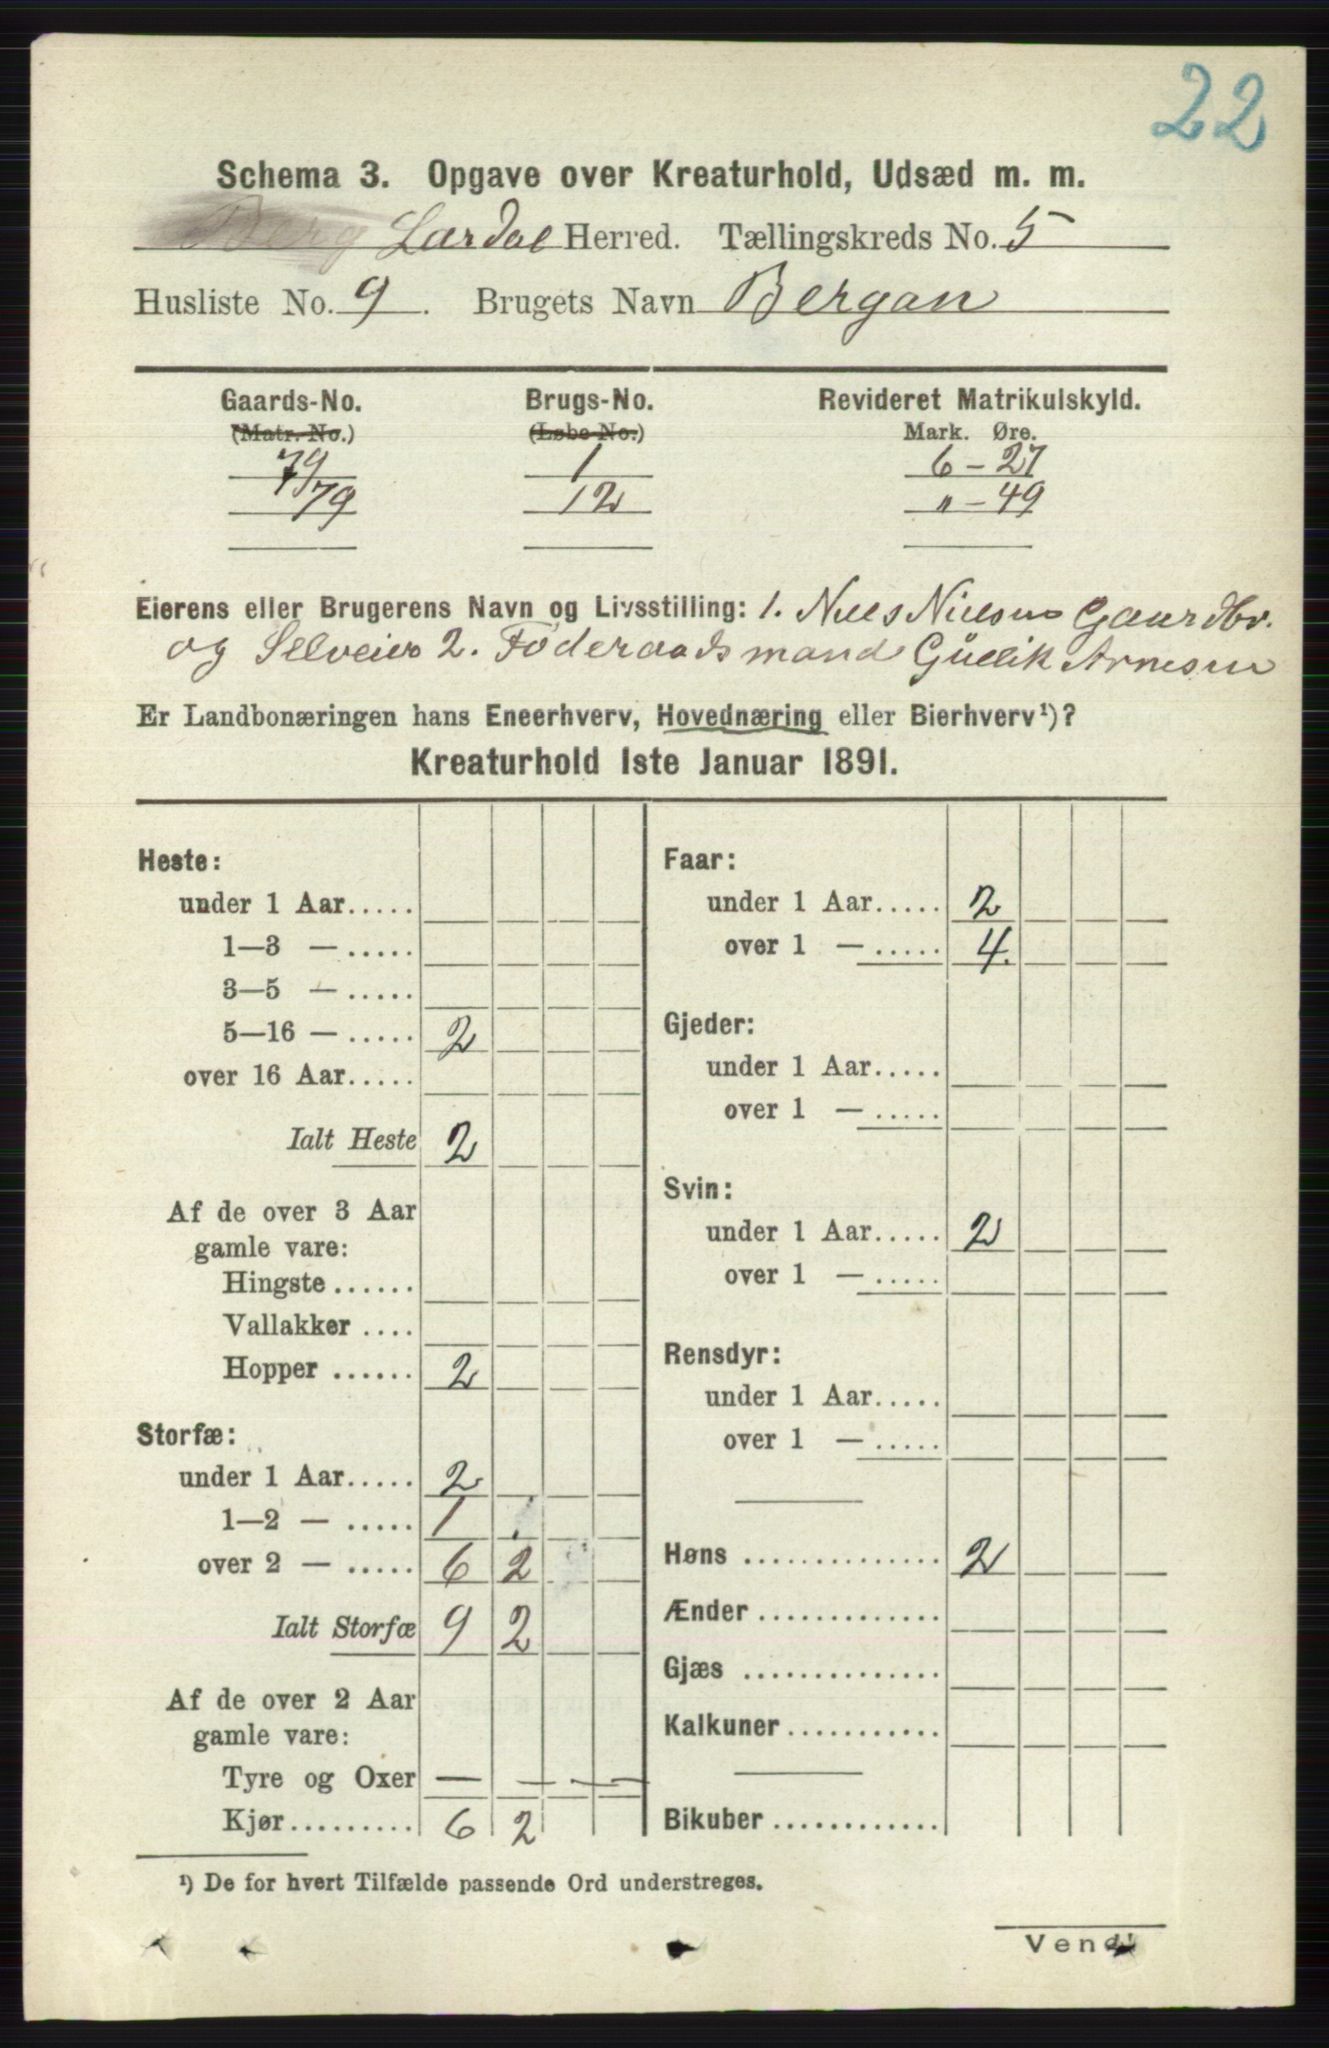 22
Schema 3. Opgave over Kreaturhold, Udsæd m. m.
Berg Lardal Herred. Tællingskreds No. 5
Husliste No. 9. Brugets Navn Bergan
Gaards-No. Brugs-No. Revideret Matrikulskyld.
(Matr. No.) (Løbe No.) Mark. Øre.
79 1 6 - 27
79 12 " - 49
Eierens eller Brugerens Navn og Livsstilling: 1. Niels Nielsen Gaardbr.
og Selveier 2. Føderaadsmand Gullik Arnesen
Er Landbonæringen hans Eneerhverv, Hovednæring eller Bierhverv¹)?
Kreaturhold 1ste Januar 1891.
Heste:
under 1 Aar.....
1—3 — .....
3—5 — .....
5—16 — ..... 2
over 16 Aar.....
Ialt Heste 2
Af de over 3 Aar
gamle vare:
Hingste ......
Vallakker ....
Hopper ...... 2
Storfæ:
under 1 Aar..... 2
1—2 — ..... 1
over 2 — ..... 6 2
Ialt Storfæ 9 2
Af de over 2 Aar
gamle vare:
Tyre og Oxer — — — —
Kjør......... 6 2
Faar:
under 1 Aar..... 2
over 1 — ..... 4.
Gjeder:
under 1 Aar.....
over 1 — .....
Svin:
under 1 Aar..... 2
over 1 — .....
Rensdyr:
under 1 Aar.....
over 1 — .....
Høns ............... 2
Ænder ..............
Gjæs ...............
Kalkuner...........
Bikuber ............
¹) De for hvert Tilfælde passende Ord understreges.
Vend!